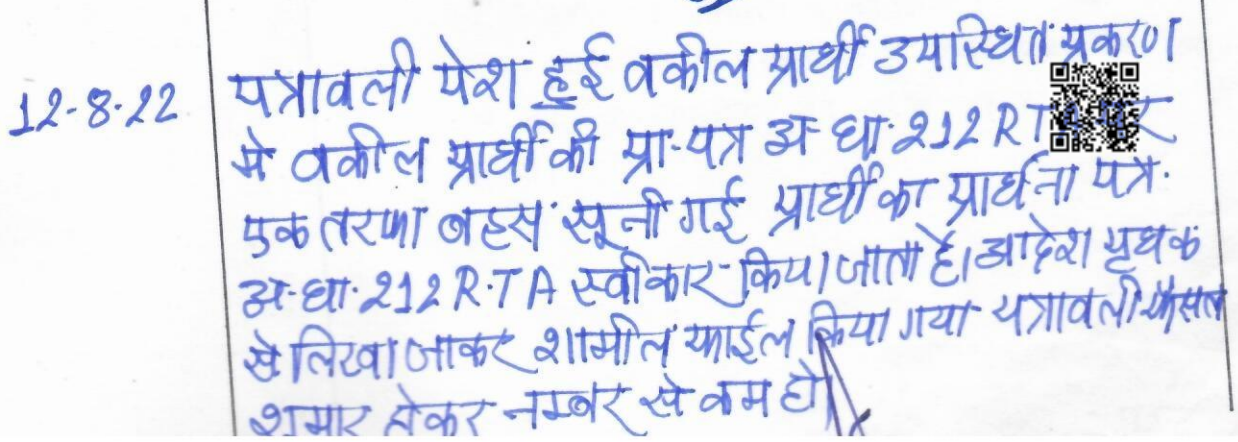 12-8-22 पत्रावली पेश हुई वकील प्रार्थी उपस्थित प्रकरण
मे वकील प्रार्थी की प्रा-पत्र अ-धा-212 RTA पर
एक तरफा बहस सूनी गई प्रार्थी का प्रार्थना पत्र
अ-धा-212 R.T A स्वीकार किया जाता है। आदेश पृथक
से लिखा जाकर शामील फाईल किया गया पत्रावली फैसल
शुमार होकर नम्बर से कम हो